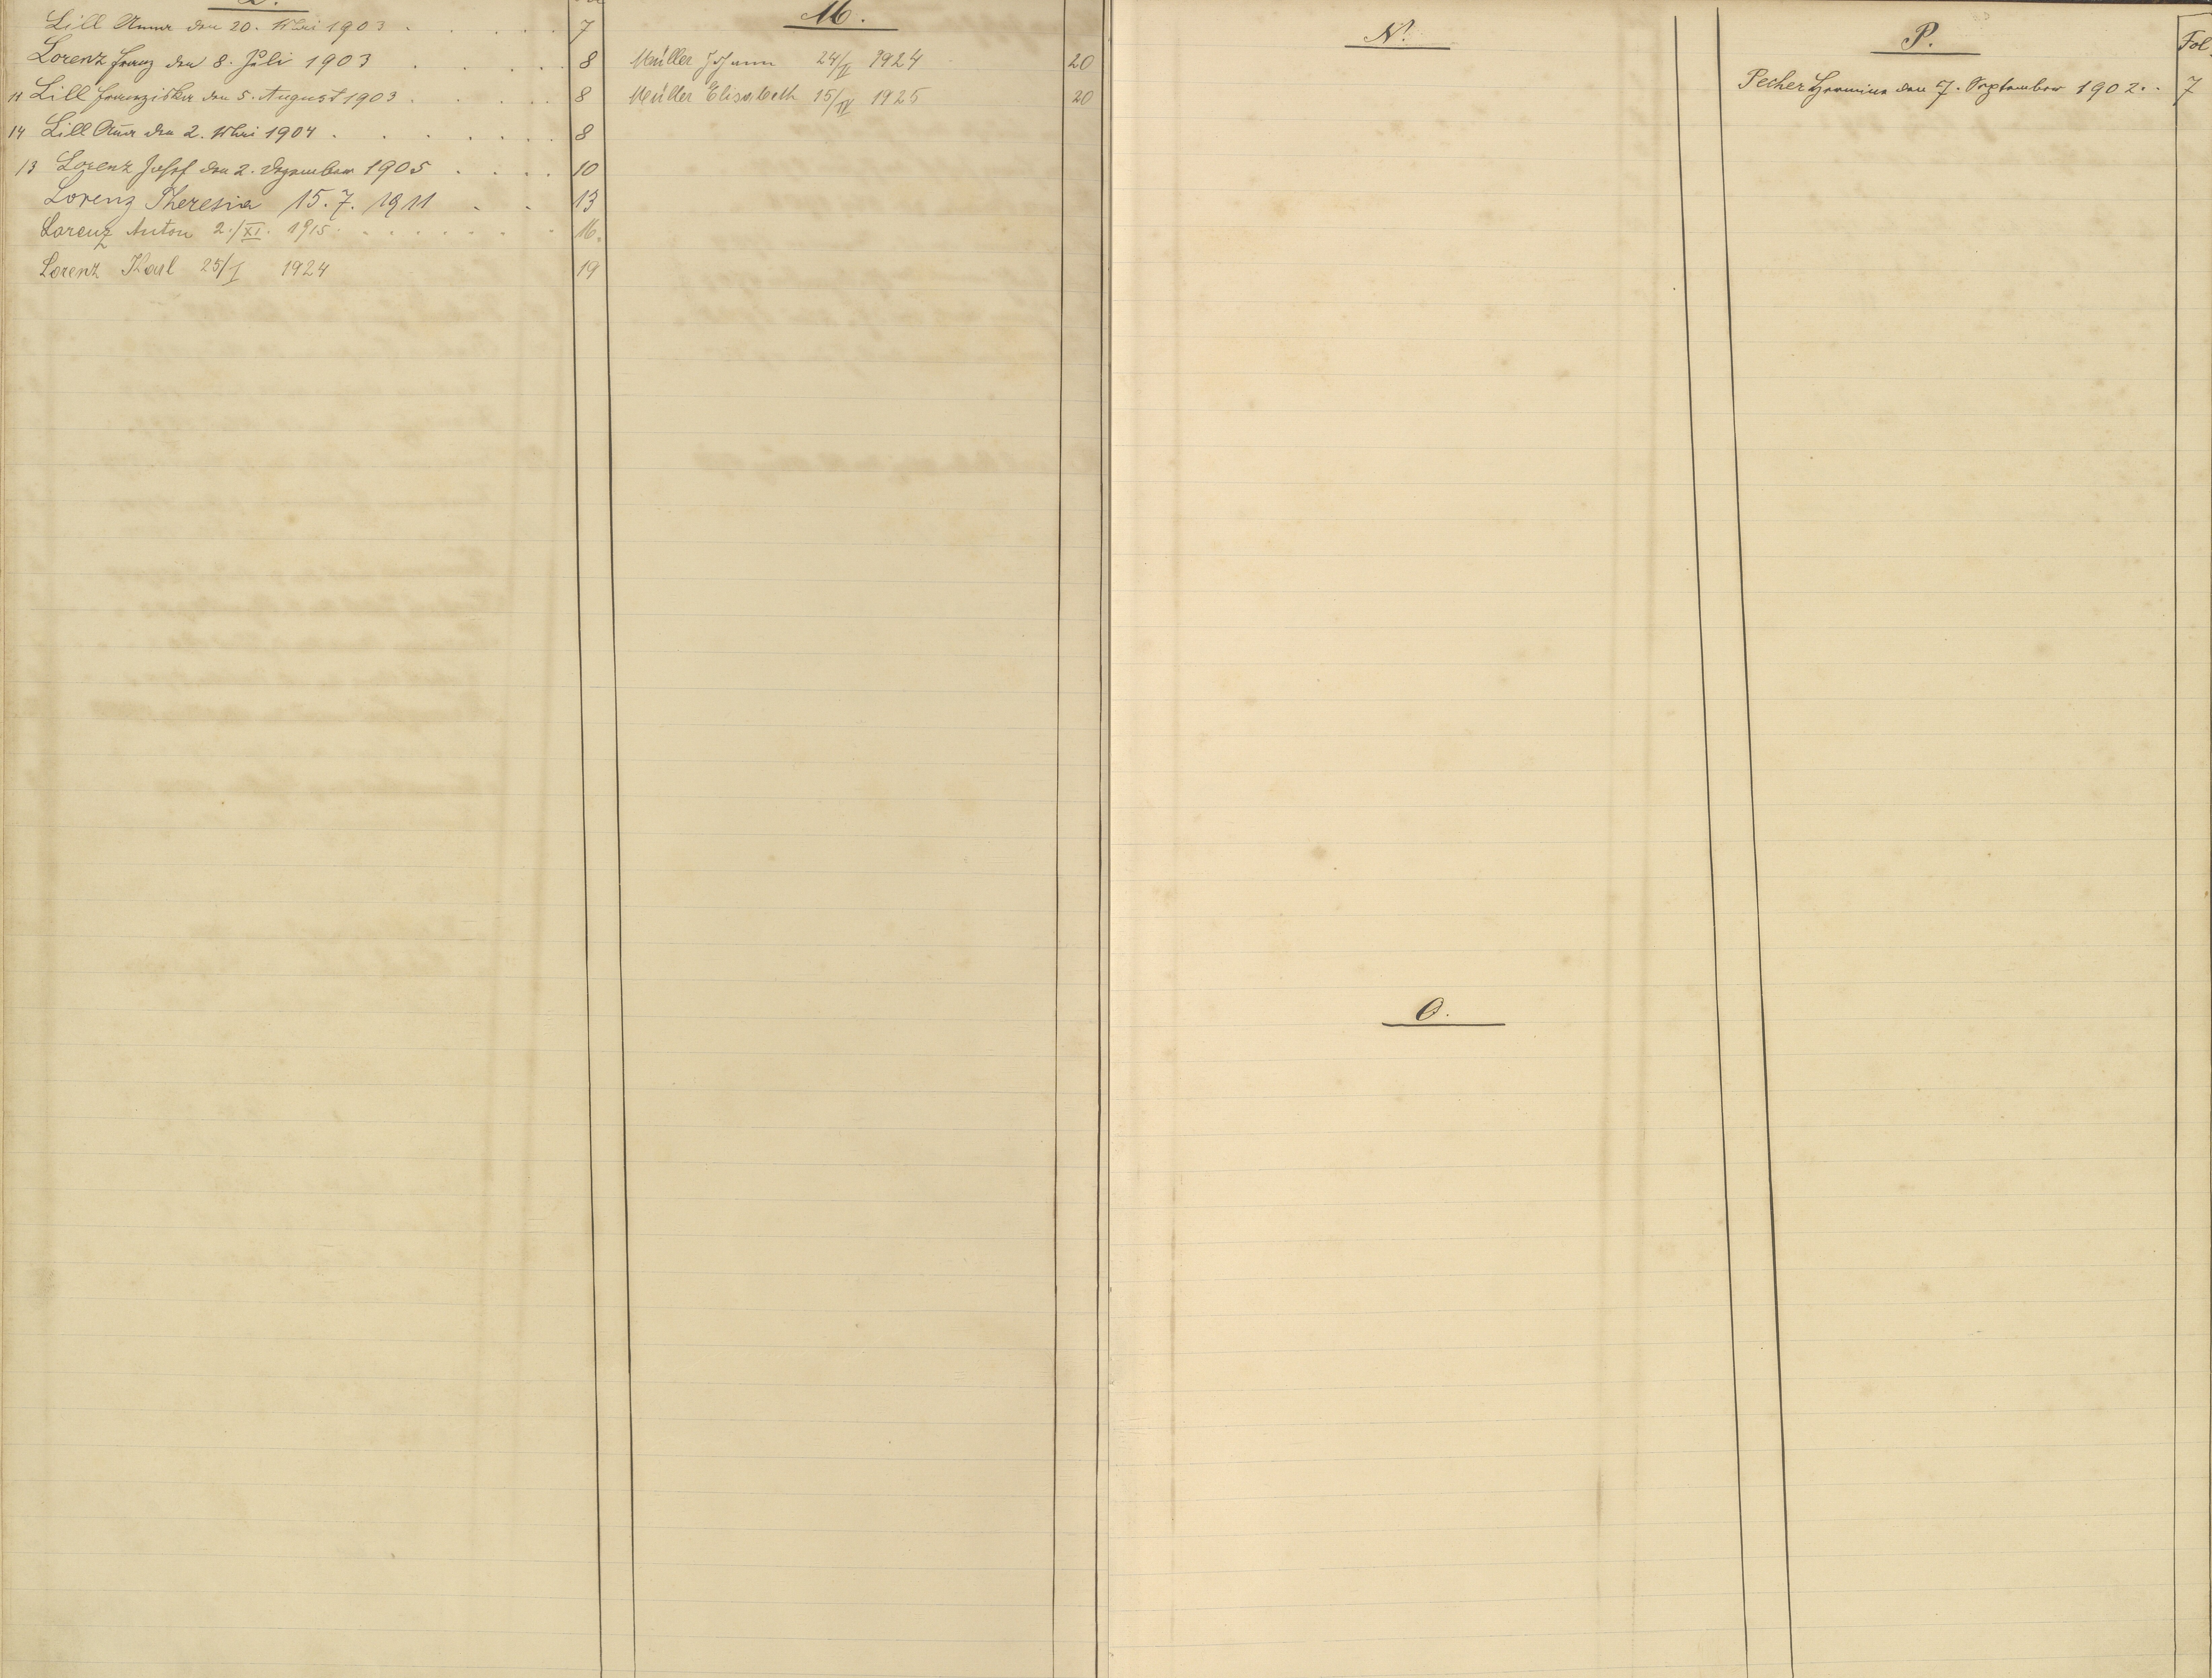 L.
Lill Anna den 20. Mai 1903 . . . . . 7
Lorenz Franz den 8. Juli 1903 . . . . . 8
Lill Franziska den 5. August 1903 . . . . . 8
14 Lill Anna den 2. Mai 1904 . . . . . . 8
13 Lorenz Josef den 2. Dezember 1905 . . . . 10
Lorenz Theresia 15. 7. 1911 . . 13
Lorenz Anton 2./XI. 1915 . . . . . . . 16.
Lorenz Karl 25/I 1924 19
M.
Müller Johann 24/II 1924 20
Müller Elisabeth 15/IV 1925 20
N.
O.
P.
Fol.
Pecher Hermina den 7. September 1902. . 7